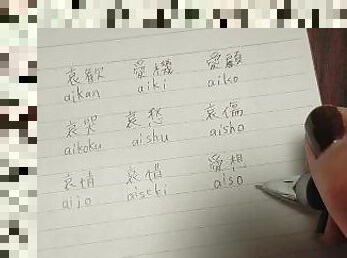 哀歓 愛機 愛顧
aikan aiki aiko
哀哭 哀愁 哀傷
aikoku aishu aisho
哀情 哀惜 愛想
aijo aiseki aiso